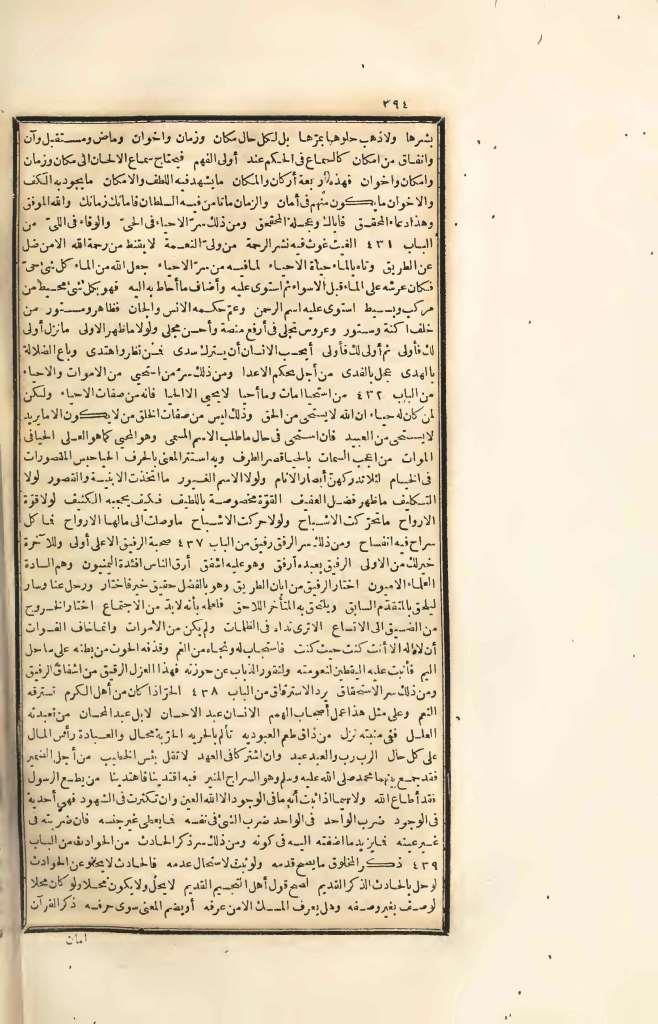 ٣٩٤
بشرها ولا ذهب حلوها بمرّها بل لكل حال مكان وزمان واخوان وماض ومستقبل وآن
واتفاق من امكان كالسماع فى الحكم عند أولى الفهم فيحتاج سماع الالحان الى مكان وزمان
وامكان واخوان فهذه أربعة أركان والمكان ما يشهد فيه اللطف والامكان ما يجود به الكف
والاخوان ما يكون منهم فى أمان والزمان ما تأمن فيه السلطان فامانك زمانك والله الموفق
وهذا دعاء المحقق فاياك وعجلة المحقق ومن ذلك سرّ الاحياء فى الحىّ والوفاء فى اللىّ من
الباب ٤٣١ الغيث غوث فيه نشر الرحمة من ولىّ النعمة لا يقنط من رحمة الله الا من ضل
عن الطريق وتاه بالماء حياة الاحياء لما فيه من سرّ الاحياء جعل الله من الماء كل شئ حىّ
فكان عرشه على الماء قبل الاسواء ثم استوى عليه وأضاف ما أحاط به اليه فهو بكل شئ محيط من
مركب وبسيط استوى عليه اسم الرحمن وعم حكمه الانس والجان فظاهر ومستور من
خلف اكنة وستور وعروس تجلى فى أرفع منصة وأحسن مجلى ولولا ما ظهر الاولى ما نزل أولى
لك فأولى ثم أولى لك فأولى أيحسب الانسان أن يترك سدى فمن نظر واهتدى وباع الضلالة
بالهدى عجل بالفدى من أجل تحكم الاعدا ومن ذلك سرّ من استحيى من الاموات والاحياء
من الباب ٤٣٢ من استحيا امات وما أحيا لا يحيى الا الحيا فانه من صفات الاحياء ولكن
لمن كان له حياء ان الله لا يستحى من الحق وذلك ليس من صفات الخلق من لا يكون الا ما يريد
لا يستحى من العبيد فان استحى فى حال ما طلب الاسم المسمى وهو المحيى كما هو العلى الحيا فى
الموات من اعجب السمات بالحيا قصر الطرف وبه استتر المعنى بالحرف الحيا حبس المقصورات
فى الخيام لئلا تدركهن أبصار الانام ولولا الاسم الغيور ما اتخذت الابنية والقصور لولا
التكليف ما ظهر فضل العفيف القوّة مخصوصة باللطيف فكيف يحجبه الكثيف لولا قوّة
الارواح ما تحرّكت الاشباح ولولا حركت الاشباح ما وصلت الى مالها الارواح فما كل
سراح فيه انفساح ومن ذلك سر الرفق رفيق من الباب ٤٣٧ صحبة الرفيق الاعلى أولى وللآخرة
خير لك من الاولى الرفيق بعبده أرفق وهو عليه اشفق أرق الناس افئدة اليمنيون وهم السادة
العلماء الاميون اختار الرفيق من ابان الطريق وهو بالفضل حقيق خير فاختار ورحل عنا وسار
ليلحق بالمتقدّم السابق ويلتحق به المتأخر اللاحق فاعلمه بأنه لابدّ من الاجتماع اختار الخروج
من الضيق الى الاتساع الا ترى نداء فى الظلمات ولم يكن من الاموات وانما خاف الفوات
أن لا اله الا أنت كنت حيث كنت فاستجاب له ونجاه من الغم وقذفه الحوت من بطنه على ساحل
اليم فأنبت عليه اليقطين لنعومته ولنفور الذباب عن حوزته فهذا العزل الرقيق من اشفاق الرفيق
ومن ذلك سر الاستحقاق يرد الاسترقاق من الباب ٤٣٨ الحرّ اذا كان من أهل الكرم تسترقه
النعم وعلى مثل هذا عمل أصحاب الهمم الانسان عبد الاحسان لا بل عبد المحسان من تعبدته
العلل فى منبته نزل من ذاق طعم العبوديه تألم بالحريه الحرّية محال والعبادة رأس المال
على كل حال الرب رب والعبد عبد وان اشتركا فى العهد لا تقل بئس الخطيب من أجل الضمير
فقد جمع بينهما محمد صلى الله عليه وسلم وهو السراج المنير فبه اقتدينا فاهتدينا من يطع الرسول
فقد أطاع الله ولا سيما اذا ثبت أنه ما فى الوجود الا الله العين وان تكثرت فى الشهود فهى أحدية
فى الوجود ضرب الواحد فى الواحد ضرب الشئ فى نفسه فما يعطى غير جنسه فان ضربته فى
غير عينه فما يزيد ما اضفته اليه فى كونه ومن ذلك سر ذكر الحادث من الحوادث من الباب
٤٣٩ ذكر المخلوق ما يصح قدمه ولو ثبت لاستحال عدمه فالحادث لا يخلو عن الحوادث
لو حل بالحادث الذكر القديم لصح قول أهل التجسيم القديم لا يحلّ ولا يكون محلا ولو كان محلا
لوصف بغير وصفه وهل يعرف المسك الا من عرفه أو يضم المعنى سوى حرفه ذكر القرآن
امان